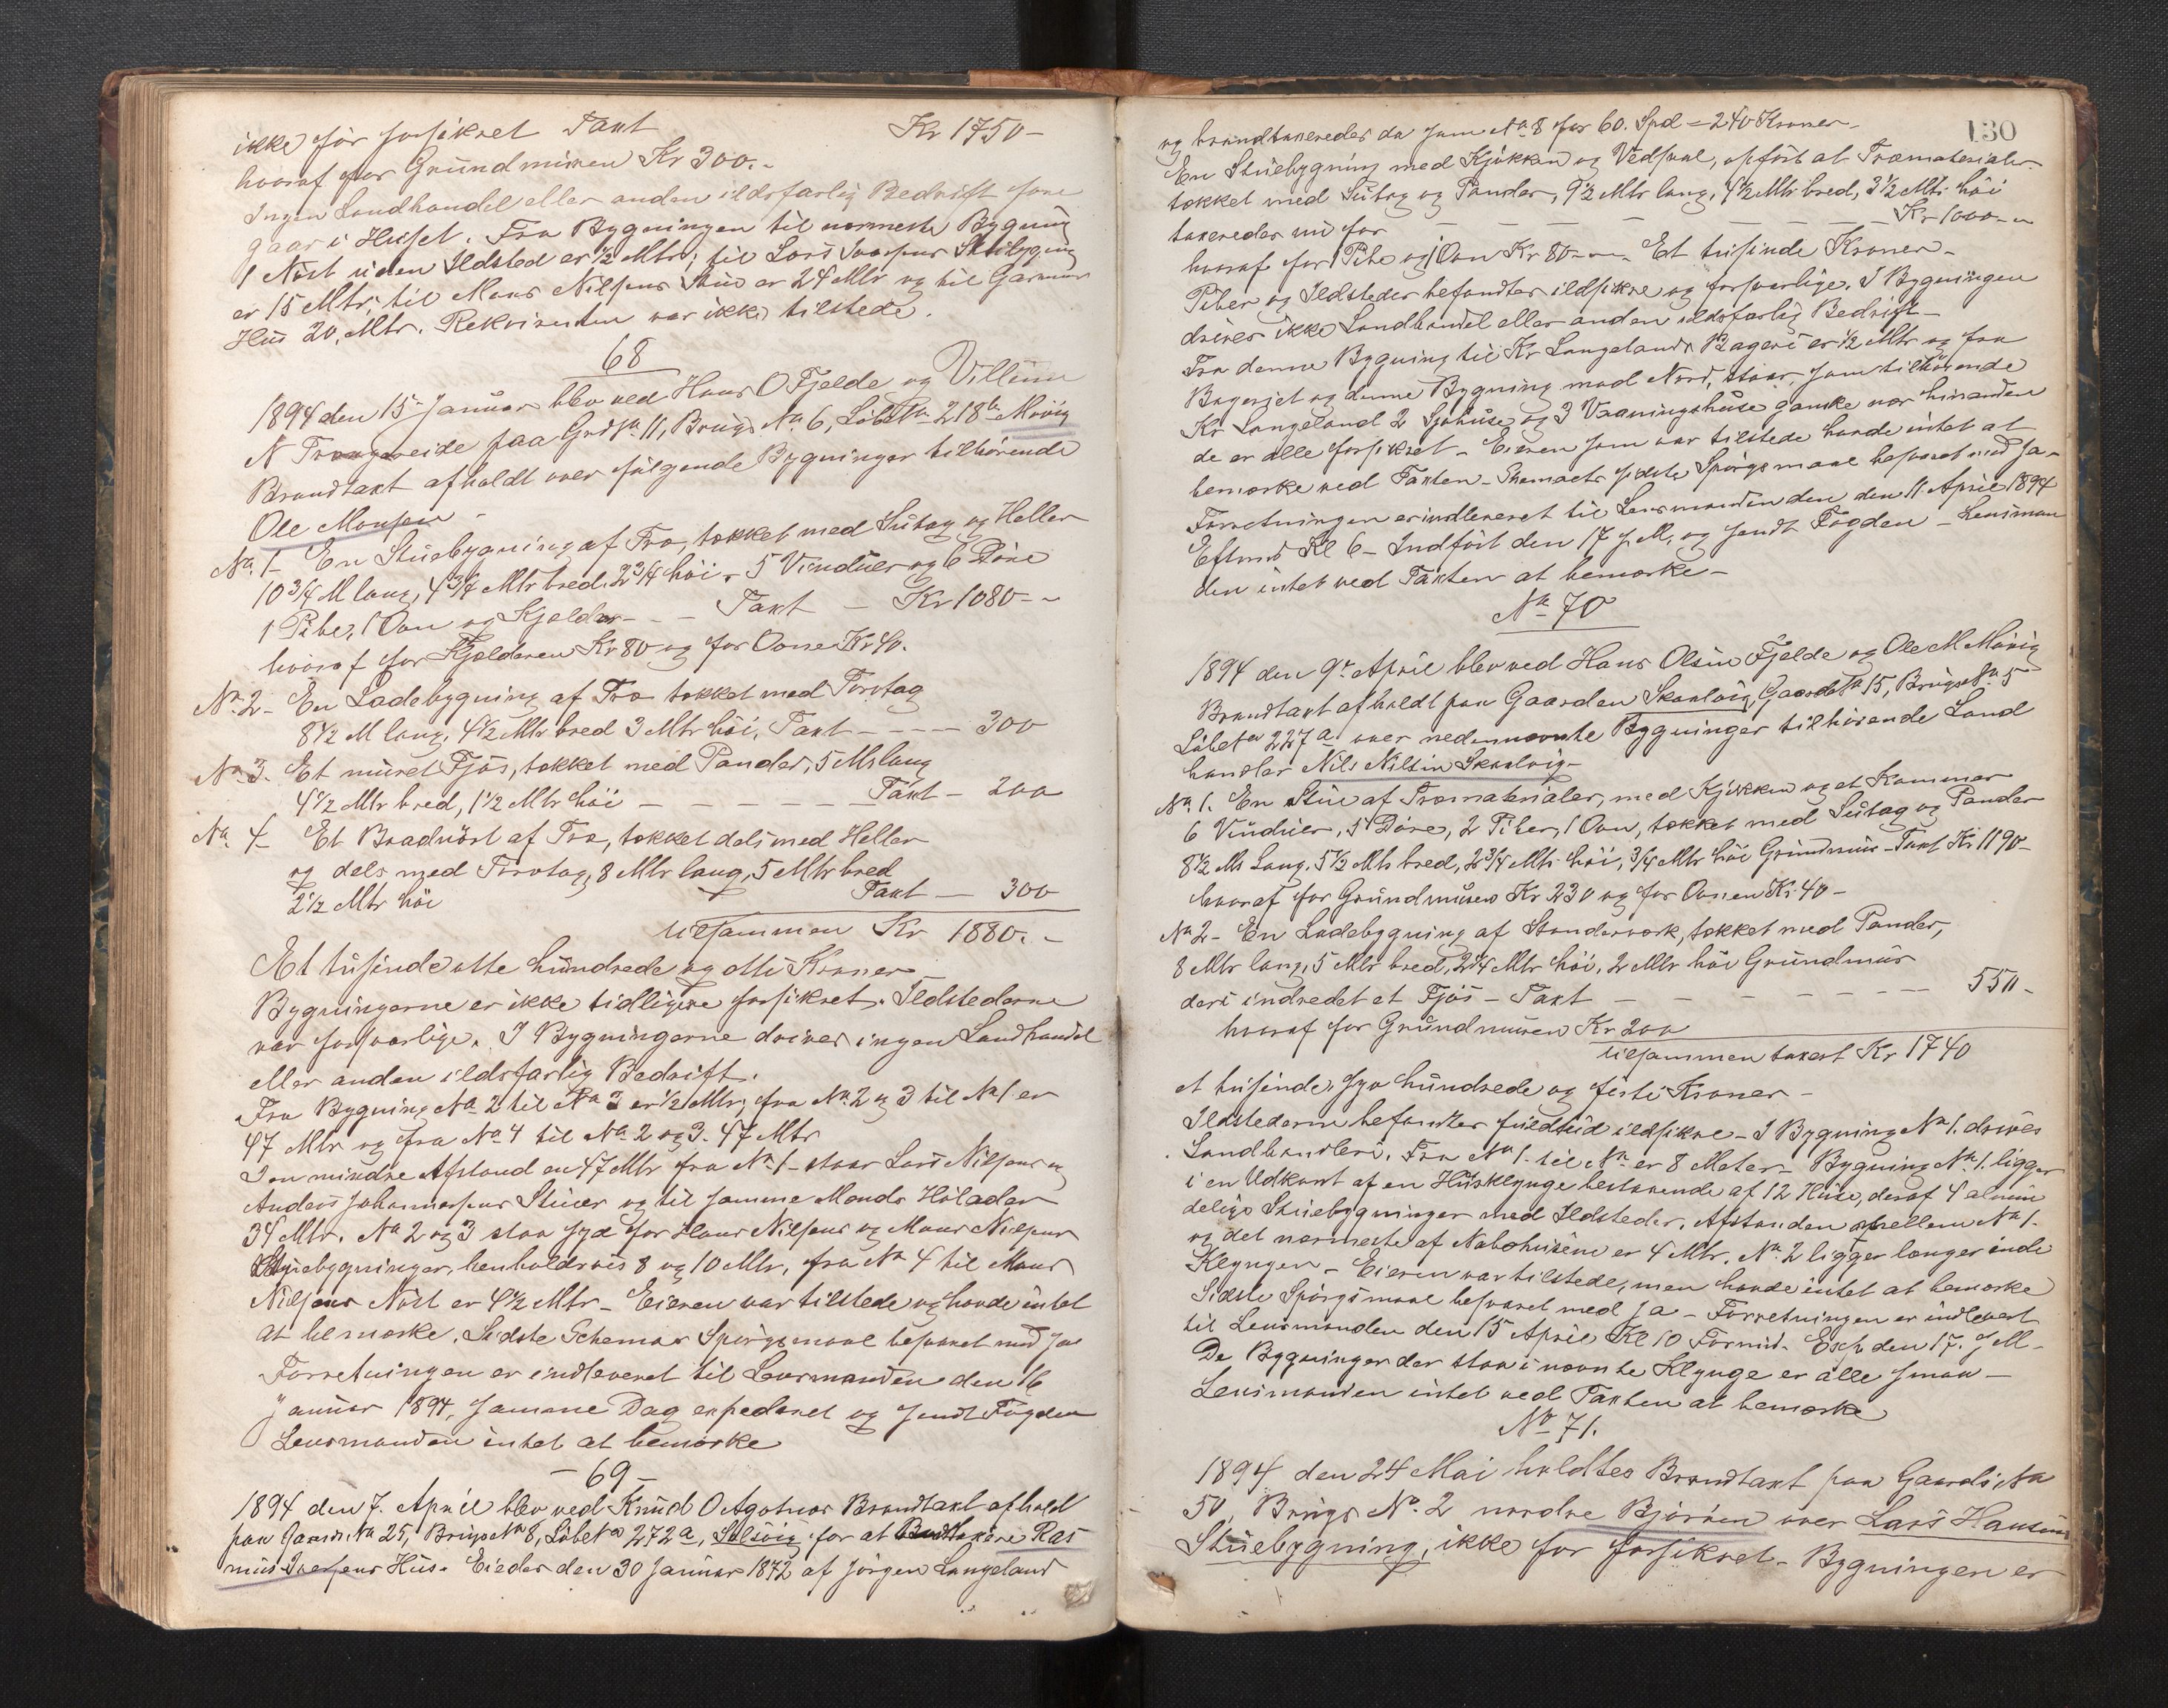 ikke før forsikret Taxt Kr 1750-
hvoraf for Grundmuren Kr 300.-
Ingen Landhandel eller anden ildsfarlig Bedrift fore
gaar i Huset. Fra Bygningen til nærmeste Bygning
1 Nøst uden Ildsted er ½ Mtr; til Lars Iversens Stuebygning
er 15 Mtr; til Mons Nilsens Stue er 24 Mtr og til
Hus 20, Mtr. Rekvirenten var ikke tilstede.
68
1894 den 15 Januar blev ved Hans O Fjelde og Villum
N Trangereide paa Grds № 11, Brugs № 6, Løbe № 218 b Møvig
Brandtaxt afholdt over følgende Bygninger tilhørende
Ole Monsen -
№ 1- En Stuebygning af Træ, tækket med Sutag og Heller
10¾ M lang, 4¾ Mtr bred, 2¾ høi, 5 Vinduer og 6 Døre
1 Pibe, 1 Ovn og Kjelder - - - Taxt - Kr 1080 - -
hvoraf for Kjelderen Kr 80 og for Ovne Kr 40.
№ 2- En Ladebygning af Træ tækket med Torvtag
8½ M lang, 4½ Mtr bred 3 Mtr høi, Taxt - - - - 300
№ 3. Et muret Fjøs, tækket med Pander, 5 M lang
4½ Mtr bred, 1½ Mtr høi - - - - - - Taxt - 200
№ 4- Et Baadnøst af Træ, tækket dels med Heller
og dels med Torvtag, 8 Mtr lang, 5 Mtr bred
2½ Mtr høi Taxt - 300
tilsammen Kr 1880.-
Et tusinde otte hundrede og otti Kroner -
Bygningerne er ikke tidligere forsikret. Ildstederne
var forsvarlige. I Bygningerne drives ingen Landhandel
eller anden ildsfarlig Bedrift.
Fra Bygning № 2 til № 3 er ½ Mtr; fra № 2 og 3 til № 1 er
47 Mtr og fra № 4 til № 2 og 3. 47 Mtr
I en mindre Afstand en 47 Mtr fra № 1- staar Lars Nilsens og
Anders Johannessens Stuer og til samme Mands Hølader
34 Mtr. № 2 og 3 staa syd for Hans Nilsens og Mons Nilsens
Stuebygninger, henholdsvis 8 og 10 Mtr, fra № 4 til Mons
Nilsens Nøst er 4½ Mtr - Eieren var tilstede og havde intet
at bemærke. Sidste Schemas Spørgsmaal besvaret med ja
Forretningen er indleveret til Lensmanden den 16
Januar 1894, samme Dag expederet og sendt Fogden
Lensmanden intet at bemærke
- 69 -
1894 den 7. April blev ved Knud O Agotnes Brandtaxt afhold
paa Gaards № 25, Brugs № 8, Løbe № 272 a, Solsvig for at Brandtaxere Ras
mus Iversens Hus. Eiedes den 30 Januar 1872 af Jørgen Langeland
130
og brandtaxeredes da som № 8 for 60. Spd = 240 Kroner -
En Stuebygning med Kjøkken og Vedsval, opført af Træmaterialer
tækket med Sutag og Pander, 9½ Mtr lang, 4½ Mtr bred, 3½ Mtr høi
taxeredes nu for - - - - - - - Kr 1000 - -
hvoraf for 1 Pibe og 1 Ovn Kr 80 - - - Et tusinde Kroner -
Piber og Ildsteder befandtes ildsikre og forsvarlige. I Bygningen
drives ikke Landhandel eller anden ildsfarlig Bedrift -
Fra denne Bygning til Kr Langelands Bageri er ½ Mtr og fra
Bageriet og denne Bygning mod Nord, staar, som tilhørende
Kr Langeland 2 Sjøhuse og 3 Vaaningshuse ganske nær hinanden
de er alle forsikret - Eieren som var tilstede havde intet at
bemærke ved Taxten - Skemaets sidste Spørgsmaal besvaret med Ja -
Forretningen er indleveret til Lensmanden den 11 April 1894
Efterm Kl 6 - Indført den 17 s. M. og sendt Fogden - Lensman
den intet ved Taxten at bemærke -
№ 70
1894 den 9de April blev ved Hans Olsen Fjelde og Ole M Møvig
Brandtaxt afholdt paa Gaarden Skaalvig, Gaards № 15, Brugs № 5
Løbe № 227 a over nedennævnte Bygninger tilhørende Land
handler Nils Nilsen Skaalvig -
№ 1. En Stue af Træmaterialer, med Kjøkken og et Kammer
6 Vinduer, 5 Døre, 2 Piber, 1 Ovn, tækket med Sutag og Pander
8½ M Lang. 5½ Mtr bred, 2¾ Mtr høi, ¾ Mtr høi Grundmur - Taxt Kr 1190 -
hvoraf for Grundmuren Kr 230 og for Ovnen Kr 40 -
№ 2 - En Ladebygning af Standerværk, tækket med Pander,
8 Mtr lang, 5 Mtr bred, 2¼ Mtr høi, 2 Mtr høi Grundmur
deri indredet et Fjøs - Taxt - - - - - - - 550 -
hvoraf for Grundmuren Kr 200
tilsammen taxert Kr 1740
et tusinde, syv hundrede og førti Kroner -
Ildstederne befandtes fuldtud ildsikre - I Bygning № 1. drives
Landhandleri. Fra № 1 - til № er 8 Meter - Bygning № 1. ligger
i en Udkant af en Husklynge bestaaende af 12 Huse, deraf 4 almin
delige Stuebygninger med Ildsteder. Afstanden mellem № 1.
og det nærmeste af Nabohusene er 4 Mtr. № 2 ligger længer inde
Klyngen - Eieren var tilstede, men havde intet at bemærke
Sidste Spørgsmaal besvaret med ja - Forretningen er indlevert
til Lensmanden den 15 April Kl 10 Formid. Exp den 17. s M -
De Bygninger der staa i nævnte Klynge er alle smaa -
Lensmanden intet ved Taxten at bemærke
№ 71.
1894 den 24 Mai holdtes Brandtaxt paa Gaards №
50, Brugs № 2 nordre Bjorøen over Lars Hansens
Stuebygning, ikke før forsikret - Bygningen er